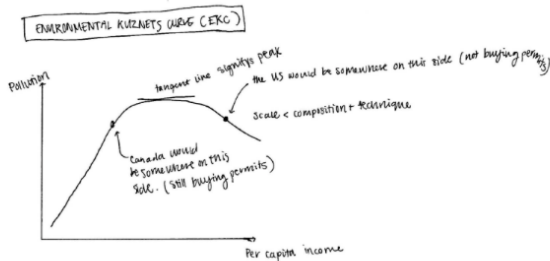 ENVIRONMENTAL KUZNETS CURVE (EKC)
Pollution
tangent line signifys peak
the US would be somewhere on this side (not buying permits)
scale < composition + technique
Canada would
be somewhere on this
side. (still buying permits)
Per capita income